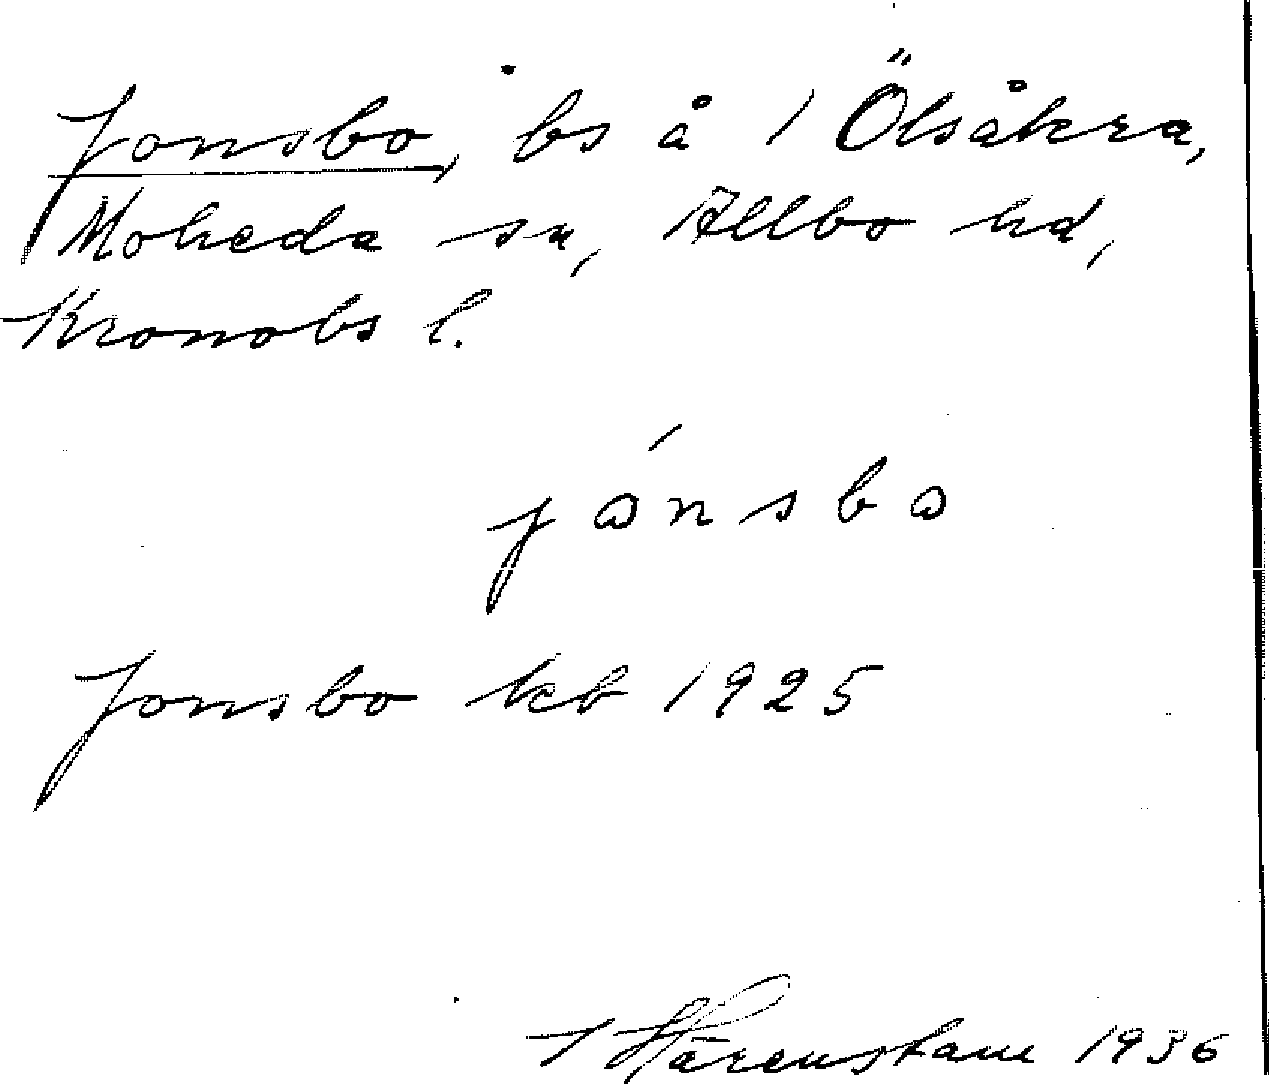 Jonsbo, bs å 1 Ölsåkra,
Moheda sn, Allbo hd,
Kronobs l.
jónsbo
Jonsbo kb 1925
Härenstam 1936